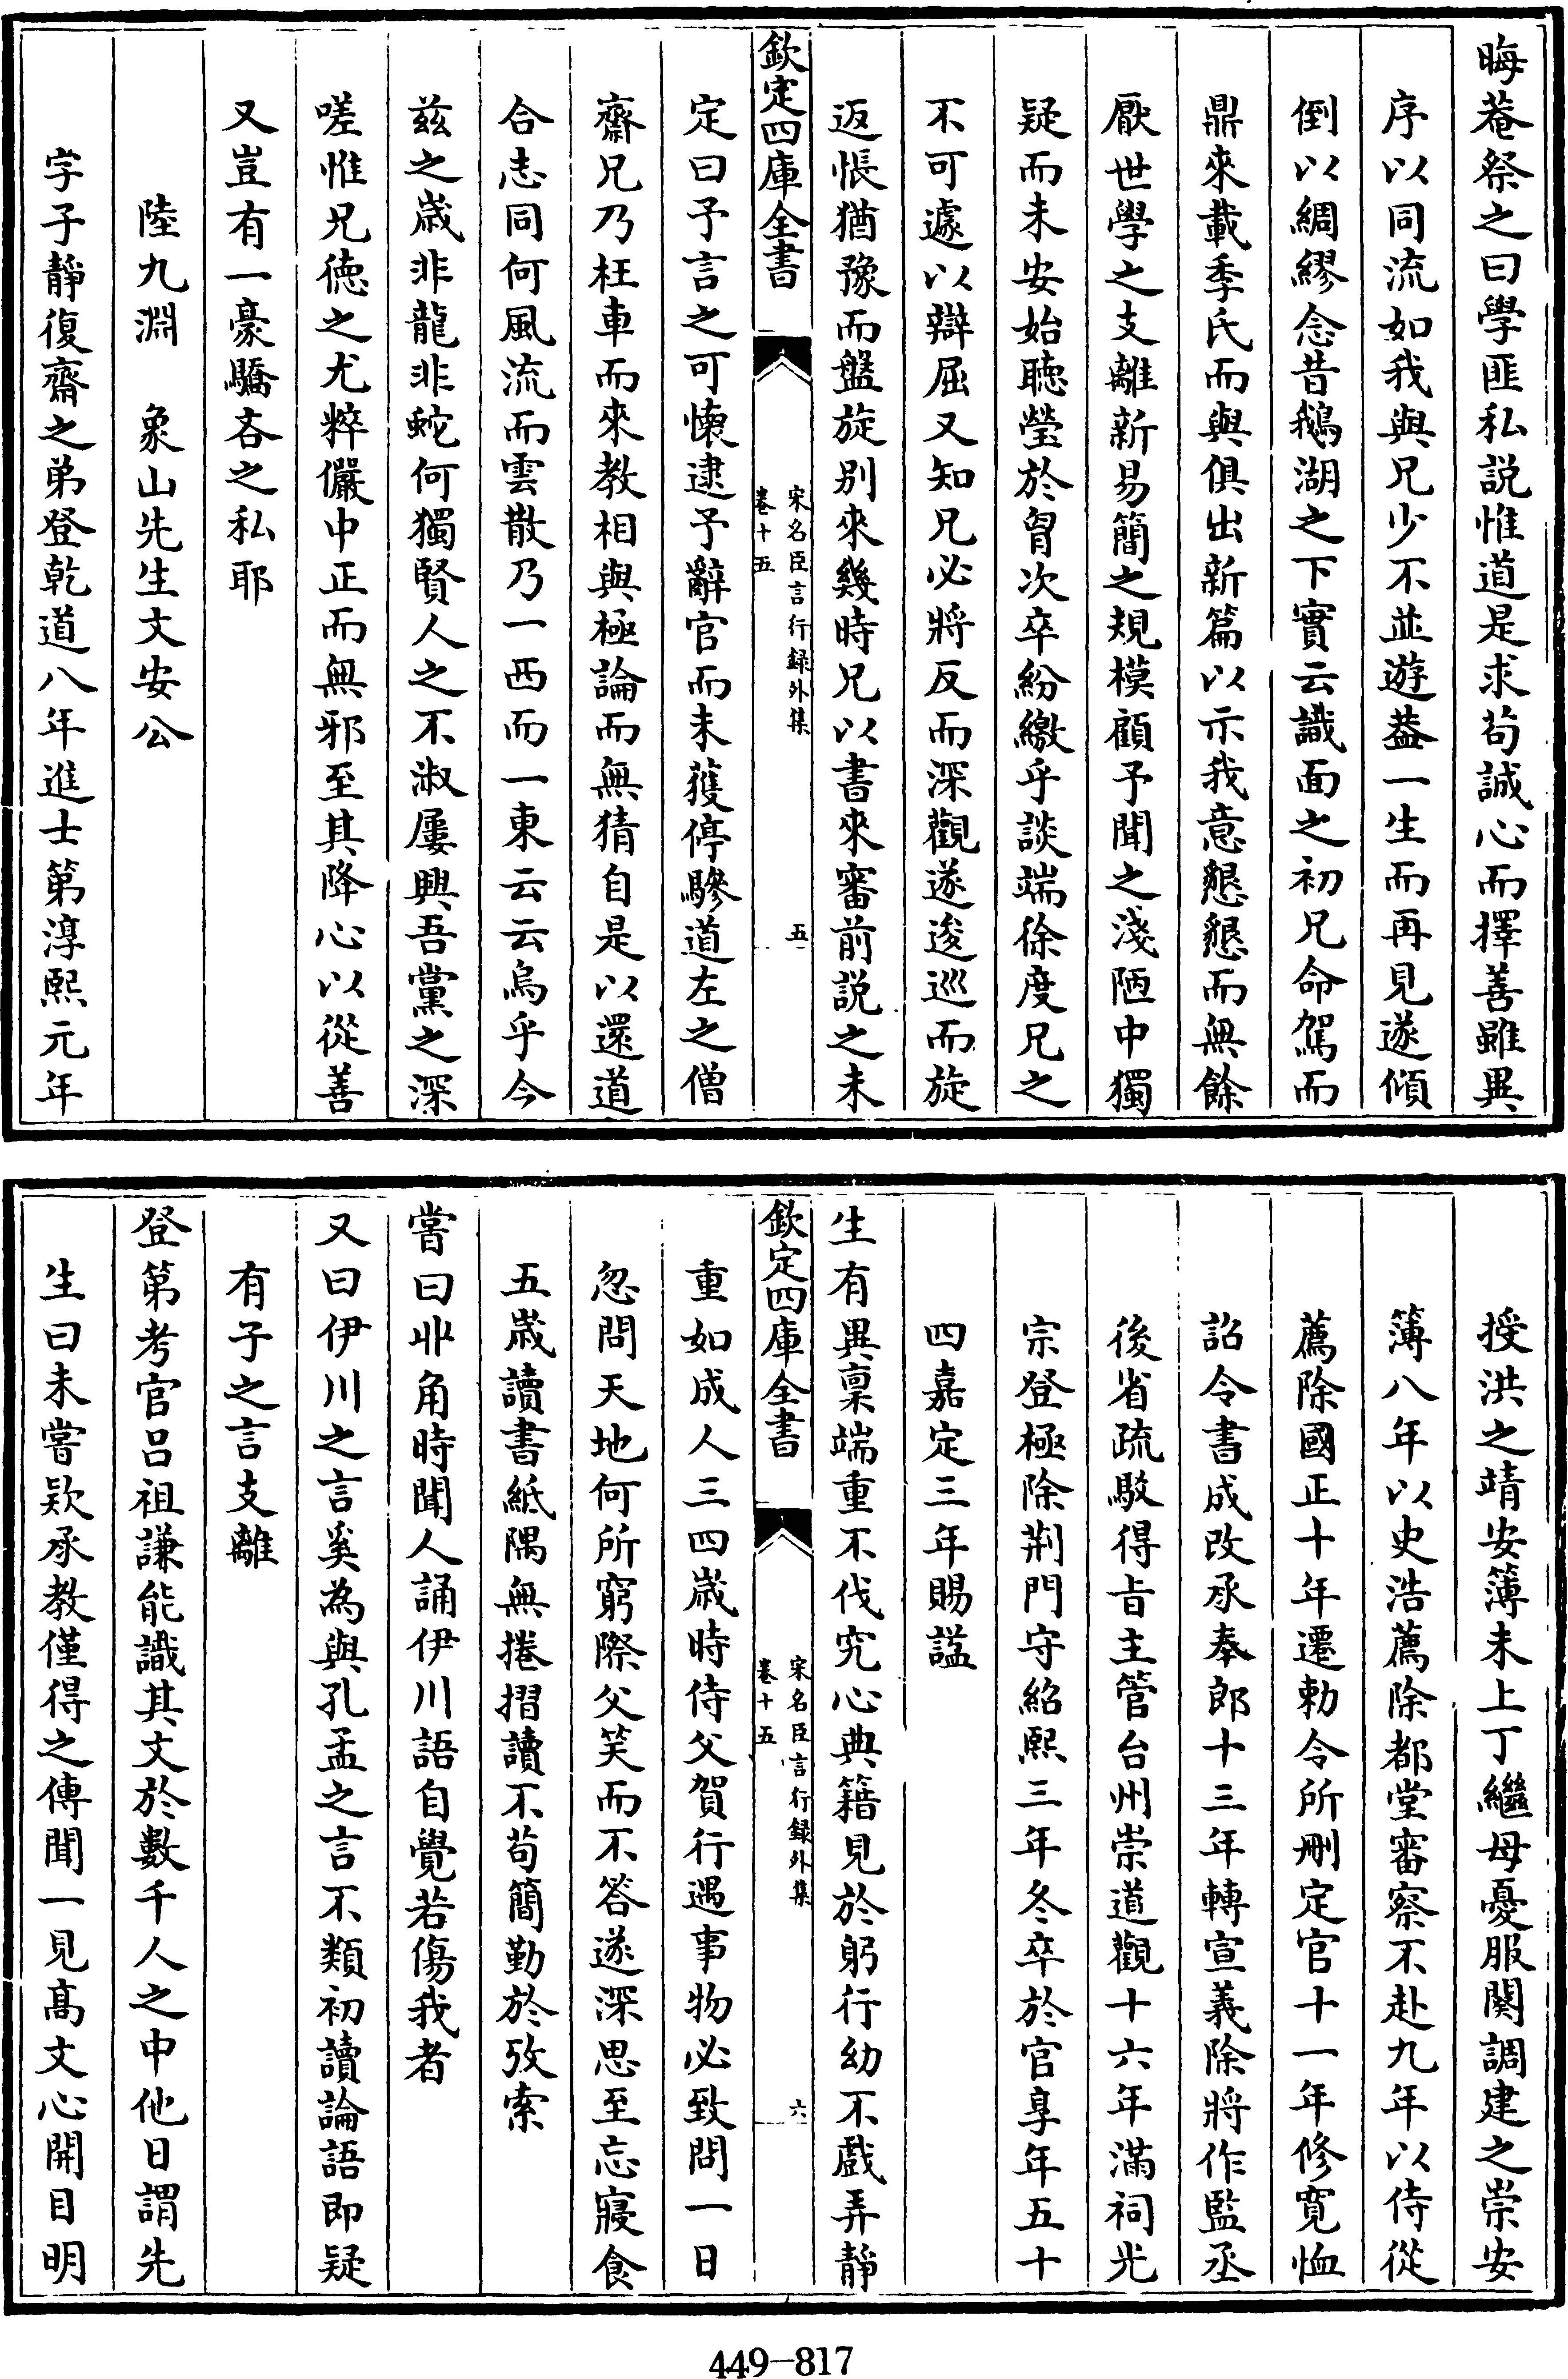 晦菴祭之曰學匪私説惟道是求苟誠心而擇善雖異
序以同流如我與兄少不並遊葢一生而再見遂傾
倒以綢繆念昔鵝湖之下實云識面之初兄命駕而
鼎來載季氏而與俱出新篇以示我意懇懇而無餘
厭世學之支離新易簡之規模顧予聞之淺陋中獨
疑而未安始聽瑩於胷次卒紛繳乎談端徐度兄之
不可遽以辯屈又知兄必將反而深觀遂逡巡而旋
返悵猶豫而盤旋别來幾時兄以書來審前説之未
欽定四庫全書
宋名臣言行録外集
卷十五
五
定曰予言之可懐逮予辭官而未獲停驂道左之僧
齋兄乃枉車而來教相與極論而無猜自是以還道
合志同何風流而雲散乃一西而一東云云烏乎今
兹之嵗非龍非蛇何獨賢人之不淑屢興吾黨之深
嗟惟兄徳之尤粹儼中正而無邪至其降心以從善
又豈有一豪驕吝之私耶
陸九淵　象山先生文安公
字子靜復齋之弟登乾道八年進士第淳熙元年
授洪之靖安簿未上丁繼母憂服闋調建之崇安
簿八年以史浩薦除都堂審察不赴九年以侍從
薦除國正十年遷勅令所刪定官十一年修寛恤
詔令書成改承奉郎十三年轉宣義除將作監丞
後省疏駁得㫖主管台州崇道觀十六年滿祠光
宗登極除荆門守紹熙三年冬卒於官享年五十
四嘉定三年賜諡
生有異稟端重不伐究心典籍見於躬行幼不戲弄靜
欽定四庫全書
宋名臣言行録外集
卷十五
六
重如成人三四嵗時侍父賀行遇事物必致問一日
忽問天地何所窮際父笑而不答遂深思至忘寢食
五嵗讀書紙隅無捲摺讀不苟簡勤於攷索
嘗曰丱角時聞人誦伊川語自覺若傷我者
又曰伊川之言奚為與孔孟之言不類初讀論語即疑
有子之言支離
登第考官吕祖謙能識其文於數千人之中他日謂先
生曰未嘗欵承教僅得之傳聞一見髙文心開目明
449—817